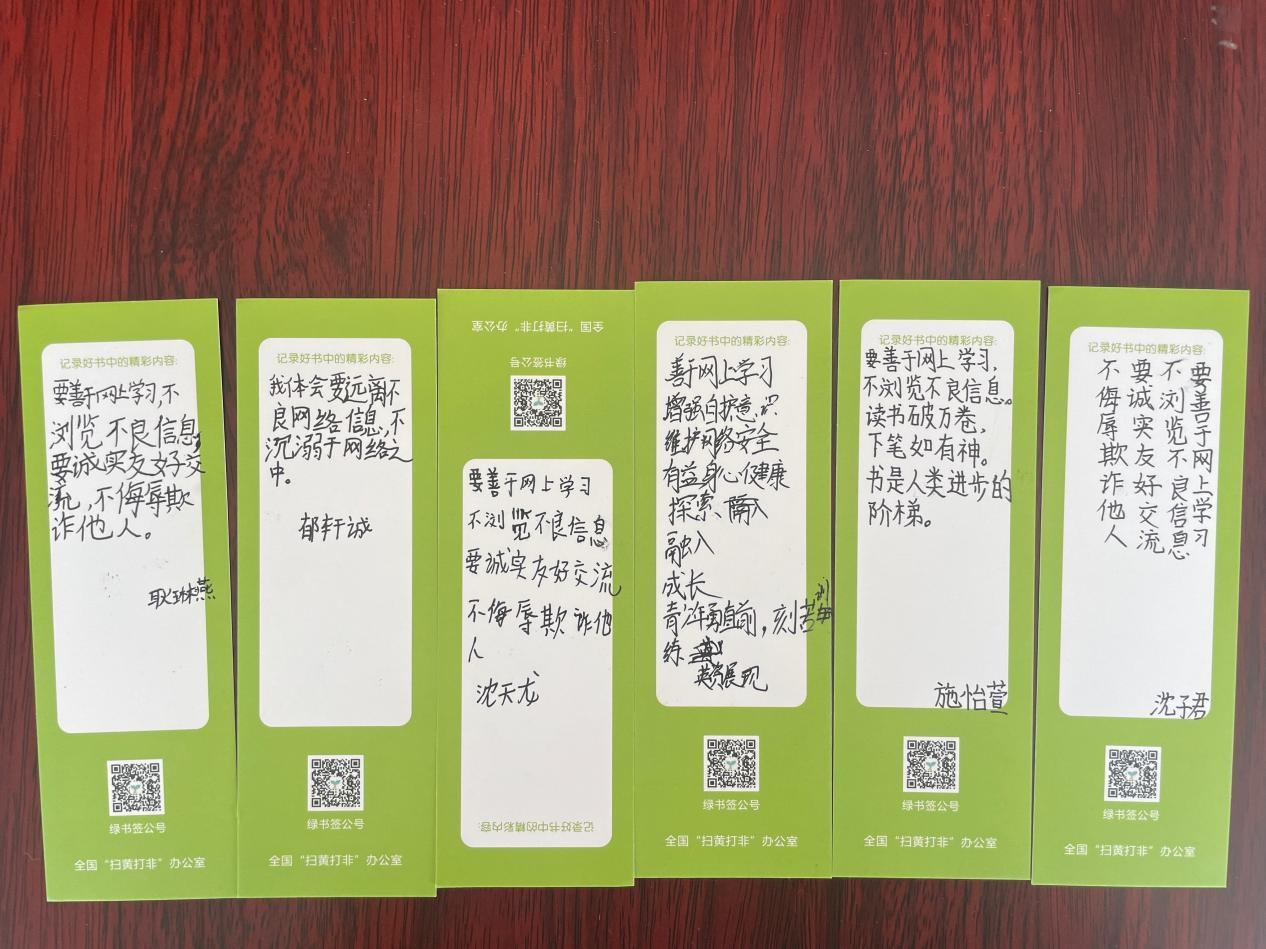 记录好书中的精彩内容:
要善于网上学习,不
浏览不良信息,
要诚实友好交
流,不侮辱欺
诈他人。
耿琳燕
绿书签公号
全国“扫黄打非”办公室
记录好书中的精彩内容:
我体会要远离不
良网络信息,不
沉溺于网络之
中。
郁轩诚
绿书签公号
全国“扫黄打非”办公室
全国“扫黄打非”办公室
绿书签公号
要善于网上学习
不浏览不良信息
要诚实友好交流
不侮辱欺诈他
人
沈天龙
记录好书中的精彩内容:
善于网上学习
增强自护意识
维护网络安全
有益身心健康
探索
融入
成长
青少年勇直前,刻苦训
练
英姿展现
绿书签公号
全国“扫黄打非”办公室
记录好书中的精彩内容:
要善于网上学习,
不浏览不良信息。
读书破万卷,
下笔如有神。
书是人类进步的
阶梯。
施怡萱
绿书签公号
全国“扫黄打非”办公室
记录好书中的精彩内容:
要善于网上学习
不浏览不良信息
要诚实友好交流
不侮辱欺诈他人
沈子君
绿书签公号
全国“扫黄打非”办公室